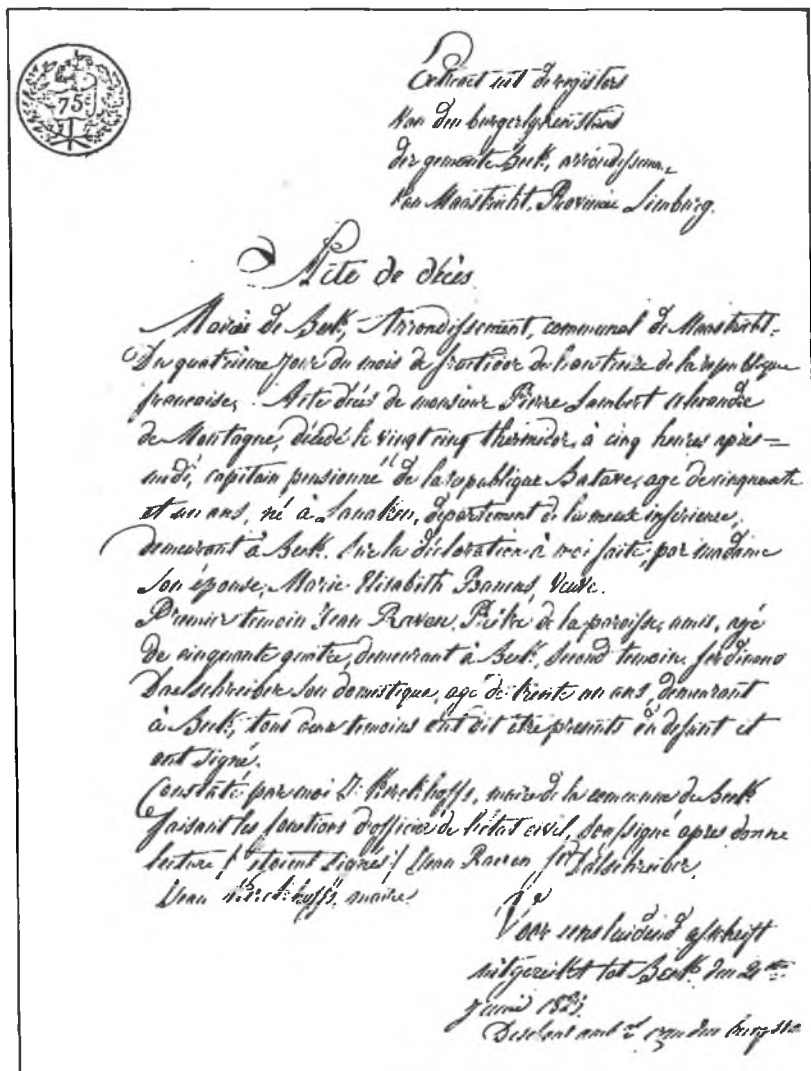 75
Extract uit de registers
van den burgerlyken stand
der gemeente Beek, arrondissem.
van Maastricht, Provincie Limburg.
Acte de décès
Mairie de Beek, Arrondissement, communal de Maastricht.
Du quatrième jour du mois de fructidor de l'an treize de la republique
française. Acte décès de monsieur Pierre Lambert Alexandre
de Montagne, décédé le vingt cinq thermidor, à cinq heures après=
midi, capitain pensionné de la republique Batave, age de cinquante
et un ans, né à Lanaken, departement de la meuse inferieure,
demeurant à Beek. Sur la déclaration à moi faite, par madame
son épouse, Marie Elisabeth veuve.
Premier temoin Jean Raven, Prêtre de la paroisse, amis, agé
de cinquante quatre, demeurant à Beek, second temoin ferdinand
Daelschreiber son domestique, agé de trente un ans, demeurant
à Beek, tous deux temoins ont dit être presents du defunt et
ont signé.
Constaté par moi J. Kerckhoffs, maire de la commune de Beek
faisant les fonctions d'officier de l'état civil, soussigné apres donné
lecture / etoient signés / Jean Raven fer Dalschreiber
Jean Kerckhoffs maire
Voor eensluidend afschrift
uitgereikt tot Beek den
Junii